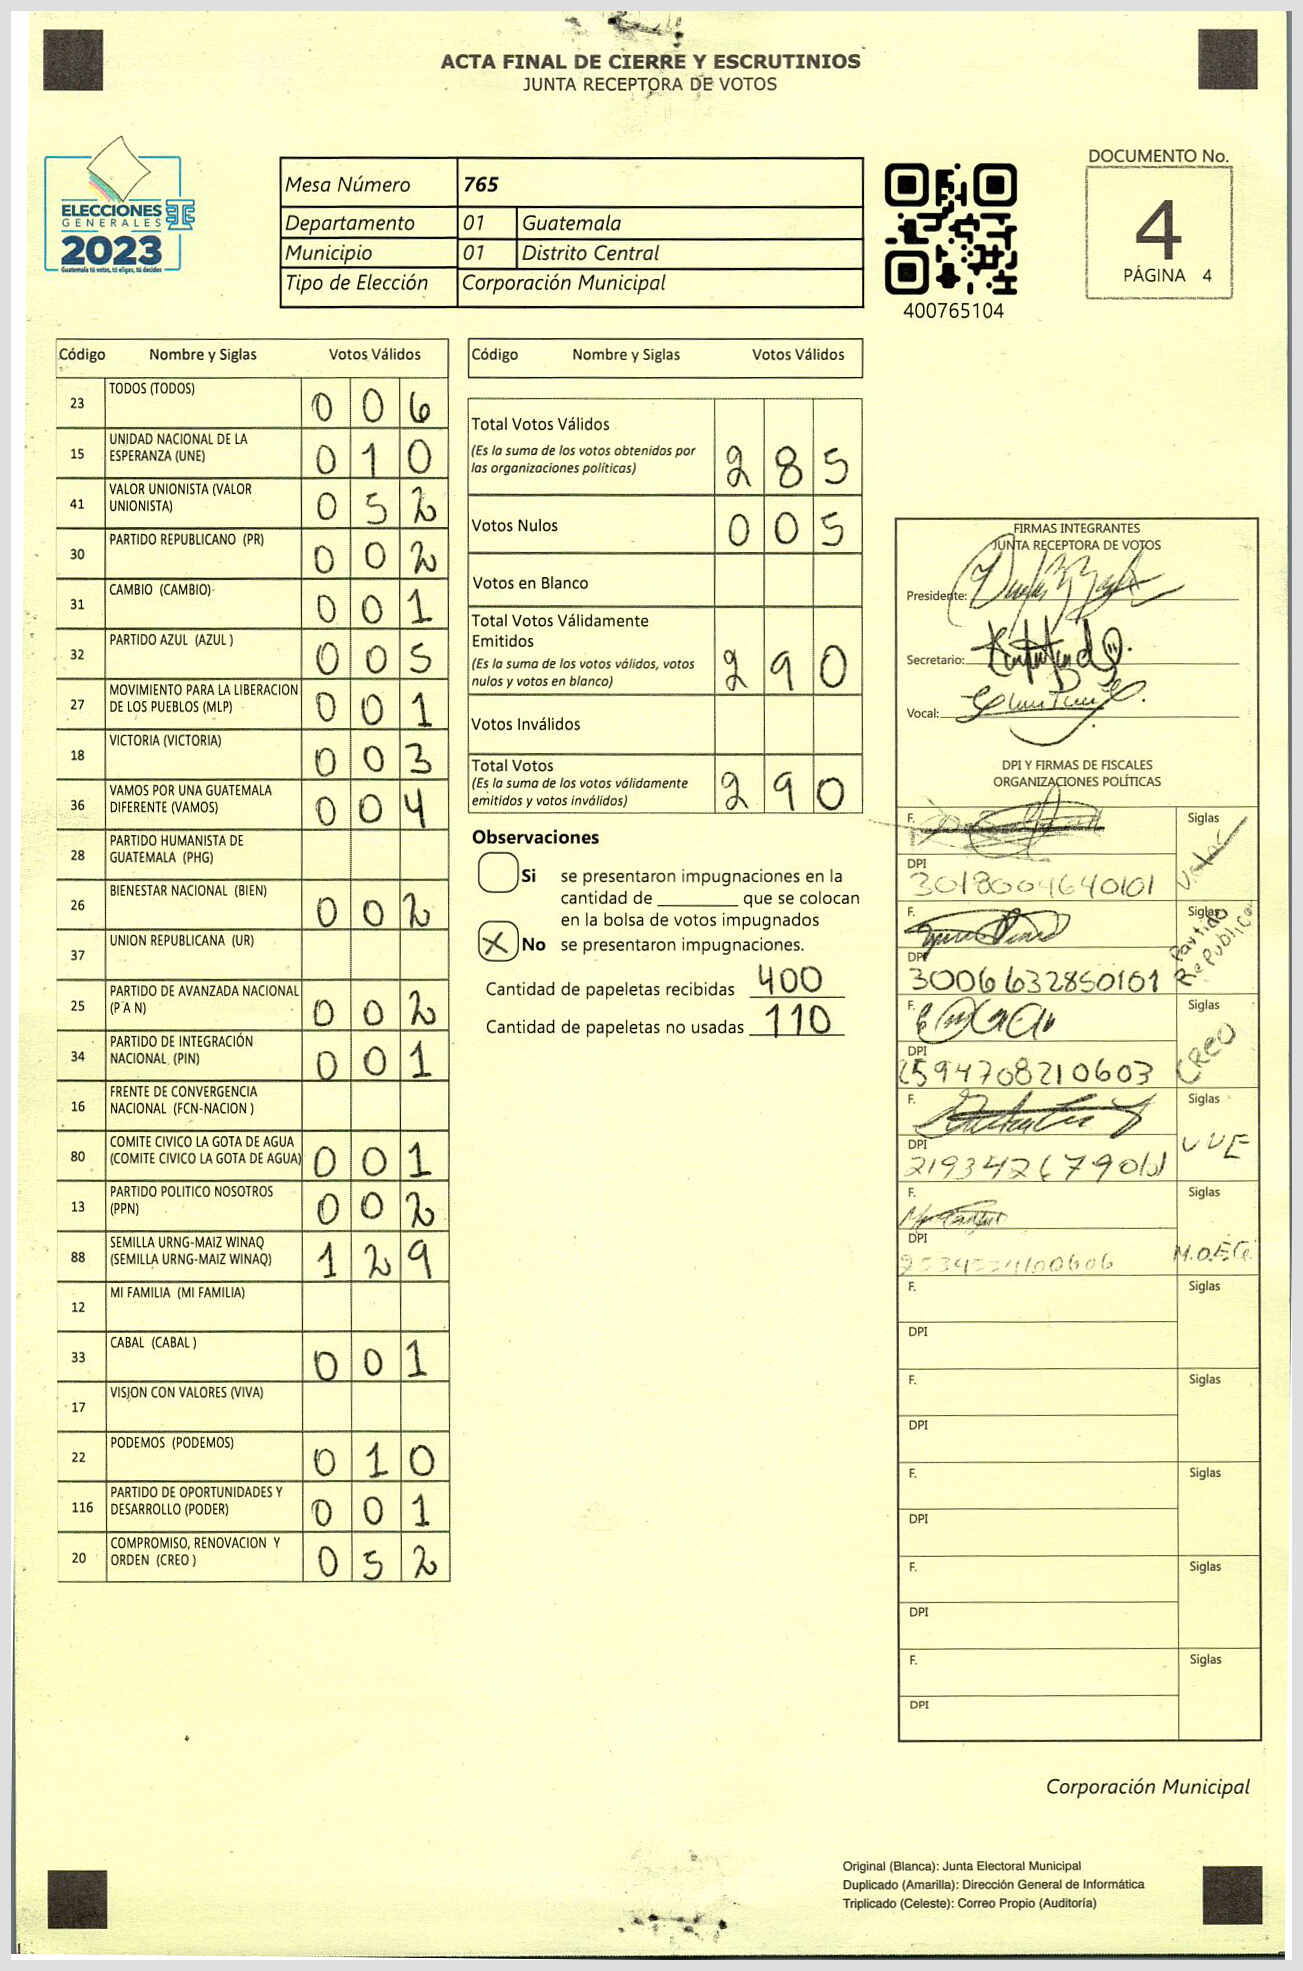 ACTA FINAL DE CIERRE Y ESCRUTINIOS
JUNTA RECEPTORA DE VOTOS
ELECCIONES
GENERALES
2023
Guatemala tú votas, tú eliges, tú decides
Mesa Número 765
Departamento 01 Guatemala
Municipio 01 Distrito Central
Tipo de Elección Corporación Municipal
400765104
DOCUMENTO No.
4
PÁGINA 4
Código Nombre y Siglas Votos Válidos
23 TODOS (TODOS) 0 0 6
15 UNIDAD NACIONAL DE LA
ESPERANZA (UNE) 0 1 0
41 VALOR UNIONISTA (VALOR
UNIONISTA) 0 5 2
30 PARTIDO REPUBLICANO (PR) 0 0 2
31 CAMBIO (CAMBIO) 0 0 1
32 PARTIDO AZUL (AZUL ) 0 0 5
27 MOVIMIENTO PARA LA LIBERACION
DE LOS PUEBLOS (MLP) 0 0 1
18 VICTORIA (VICTORIA) 0 0 3
36 VAMOS POR UNA GUATEMALA
DIFERENTE (VAMOS) 0 0 4
28 PARTIDO HUMANISTA DE
GUATEMALA (PHG)
26 BIENESTAR NACIONAL (BIEN) 0 0 2
37 UNION REPUBLICANA (UR)
25 PARTIDO DE AVANZADA NACIONAL
(P A N) 0 0 2
34 PARTIDO DE INTEGRACIÓN
NACIONAL (PIN) 0 0 1
16 FRENTE DE CONVERGENCIA
NACIONAL (FCN-NACION )
80 COMITE CIVICO LA GOTA DE AGUA
(COMITE CIVICO LA GOTA DE AGUA) 0 0 1
13 PARTIDO POLITICO NOSOTROS
(PPN) 0 0 2
88 SEMILLA URNG-MAIZ WINAQ
(SEMILLA URNG-MAIZ WINAQ) 1 2 9
12 MI FAMILIA (MI FAMILIA)
33 CABAL (CABAL ) 0 0 1
17 VISION CON VALORES (VIVA)
22 PODEMOS (PODEMOS) 0 1 0
116 PARTIDO DE OPORTUNIDADES Y
DESARROLLO (PODER) 0 0 1
20 COMPROMISO, RENOVACION Y
ORDEN (CREO ) 0 5 2
Código Nombre y Siglas Votos Válidos
Total Votos Válidos
(Es la suma de los votos obtenidos por
las organizaciones políticas) 2 8 5
Votos Nulos 0 0 5
Votos en Blanco
Total Votos Válidamente
Emitidos
(Es la suma de los votos válidos, votos
nulos y votos en blanco) 2 9 0
Votos Inválidos
Total Votos
(Es la suma de los votos válidamente
emitidos y votos inválidos) 2 9 0
Observaciones
Si se presentaron impugnaciones en la
cantidad de ________ que se colocan
en la bolsa de votos impugnados
X No se presentaron impugnaciones.
Cantidad de papeletas recibidas 400
Cantidad de papeletas no usadas 110
FIRMAS INTEGRANTES
JUNTA RECEPTORA DE VOTOS
Presidente:
Secretario:
Vocal:
DPI Y FIRMAS DE FISCALES
ORGANIZACIONES POLÍTICAS
F. Siglas
Valor
DPI
3018004640101
F. Siglas
Partido
Republicano
DPI
3006632850101
F. Siglas
CREO
DPI
2594708210603
F. Siglas
UNE
DPI
F. Siglas
DPI
F. Siglas
DPI
F. Siglas
DPI
F. Siglas
DPI
F. Siglas
DPI
F. Siglas
DPI
Corporación Municipal
Original (Blanca): Junta Electoral Municipal
Duplicado (Amarilla): Dirección General de Informática
Triplicado (Celeste): Correo Propio (Auditoría)